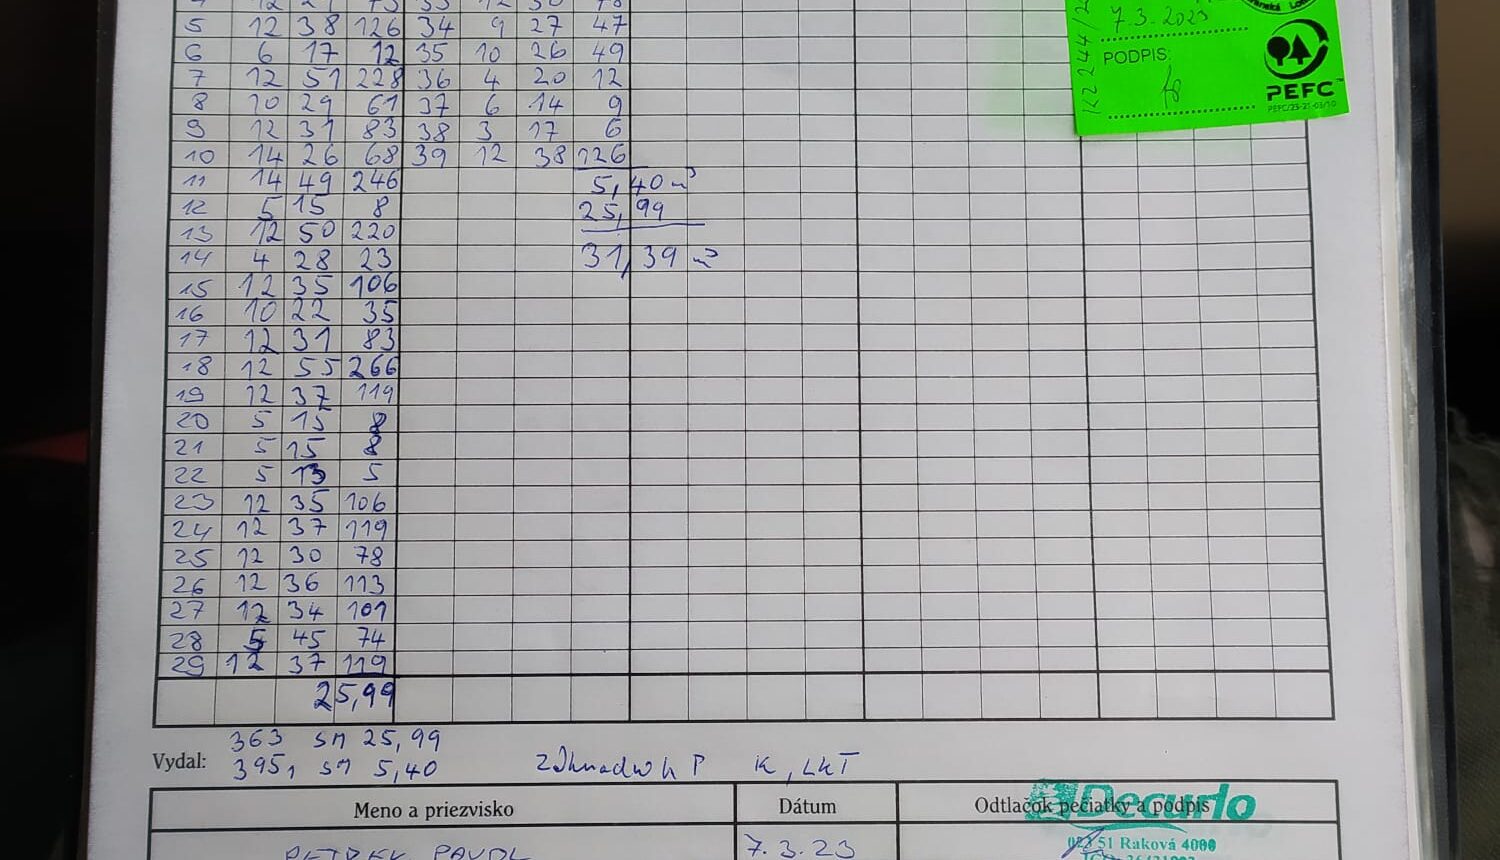 5 12 38 126 34 9 27 47
6 6 17 12 35 10 26 49
7 12 51 228 36 4 20 12
8 10 29 61 37 6 14 9
9 12 31 83 38 3 17 6
10 14 26 68 39 12 38 126
11 14 49 246 5,40 m³
12 5 15 8 25,99
13 12 50 220
14 4 28 23 31,39 m³
15 12 35 106
16 10 22 35
17 12 31 83
18 12 55 266
19 12 37 119
20 5 15 8
21 5 15 8
22 5 13 5
23 12 35 106
24 12 37 119
25 12 30 78
26 12 36 113
27 12 34 101
28 5 45 74
29 12 37 119
25,99
7.3.2023
PODPIS:
PEFC™
PEFC/23-21-03/10
363 SM 25,99
Vydal: 3951 SM 5,40 P K, LKT
Meno a priezvisko Dátum Odtlačok pečiatky a podpis
Decurlo
7.3.23
023 51 Raková 4000